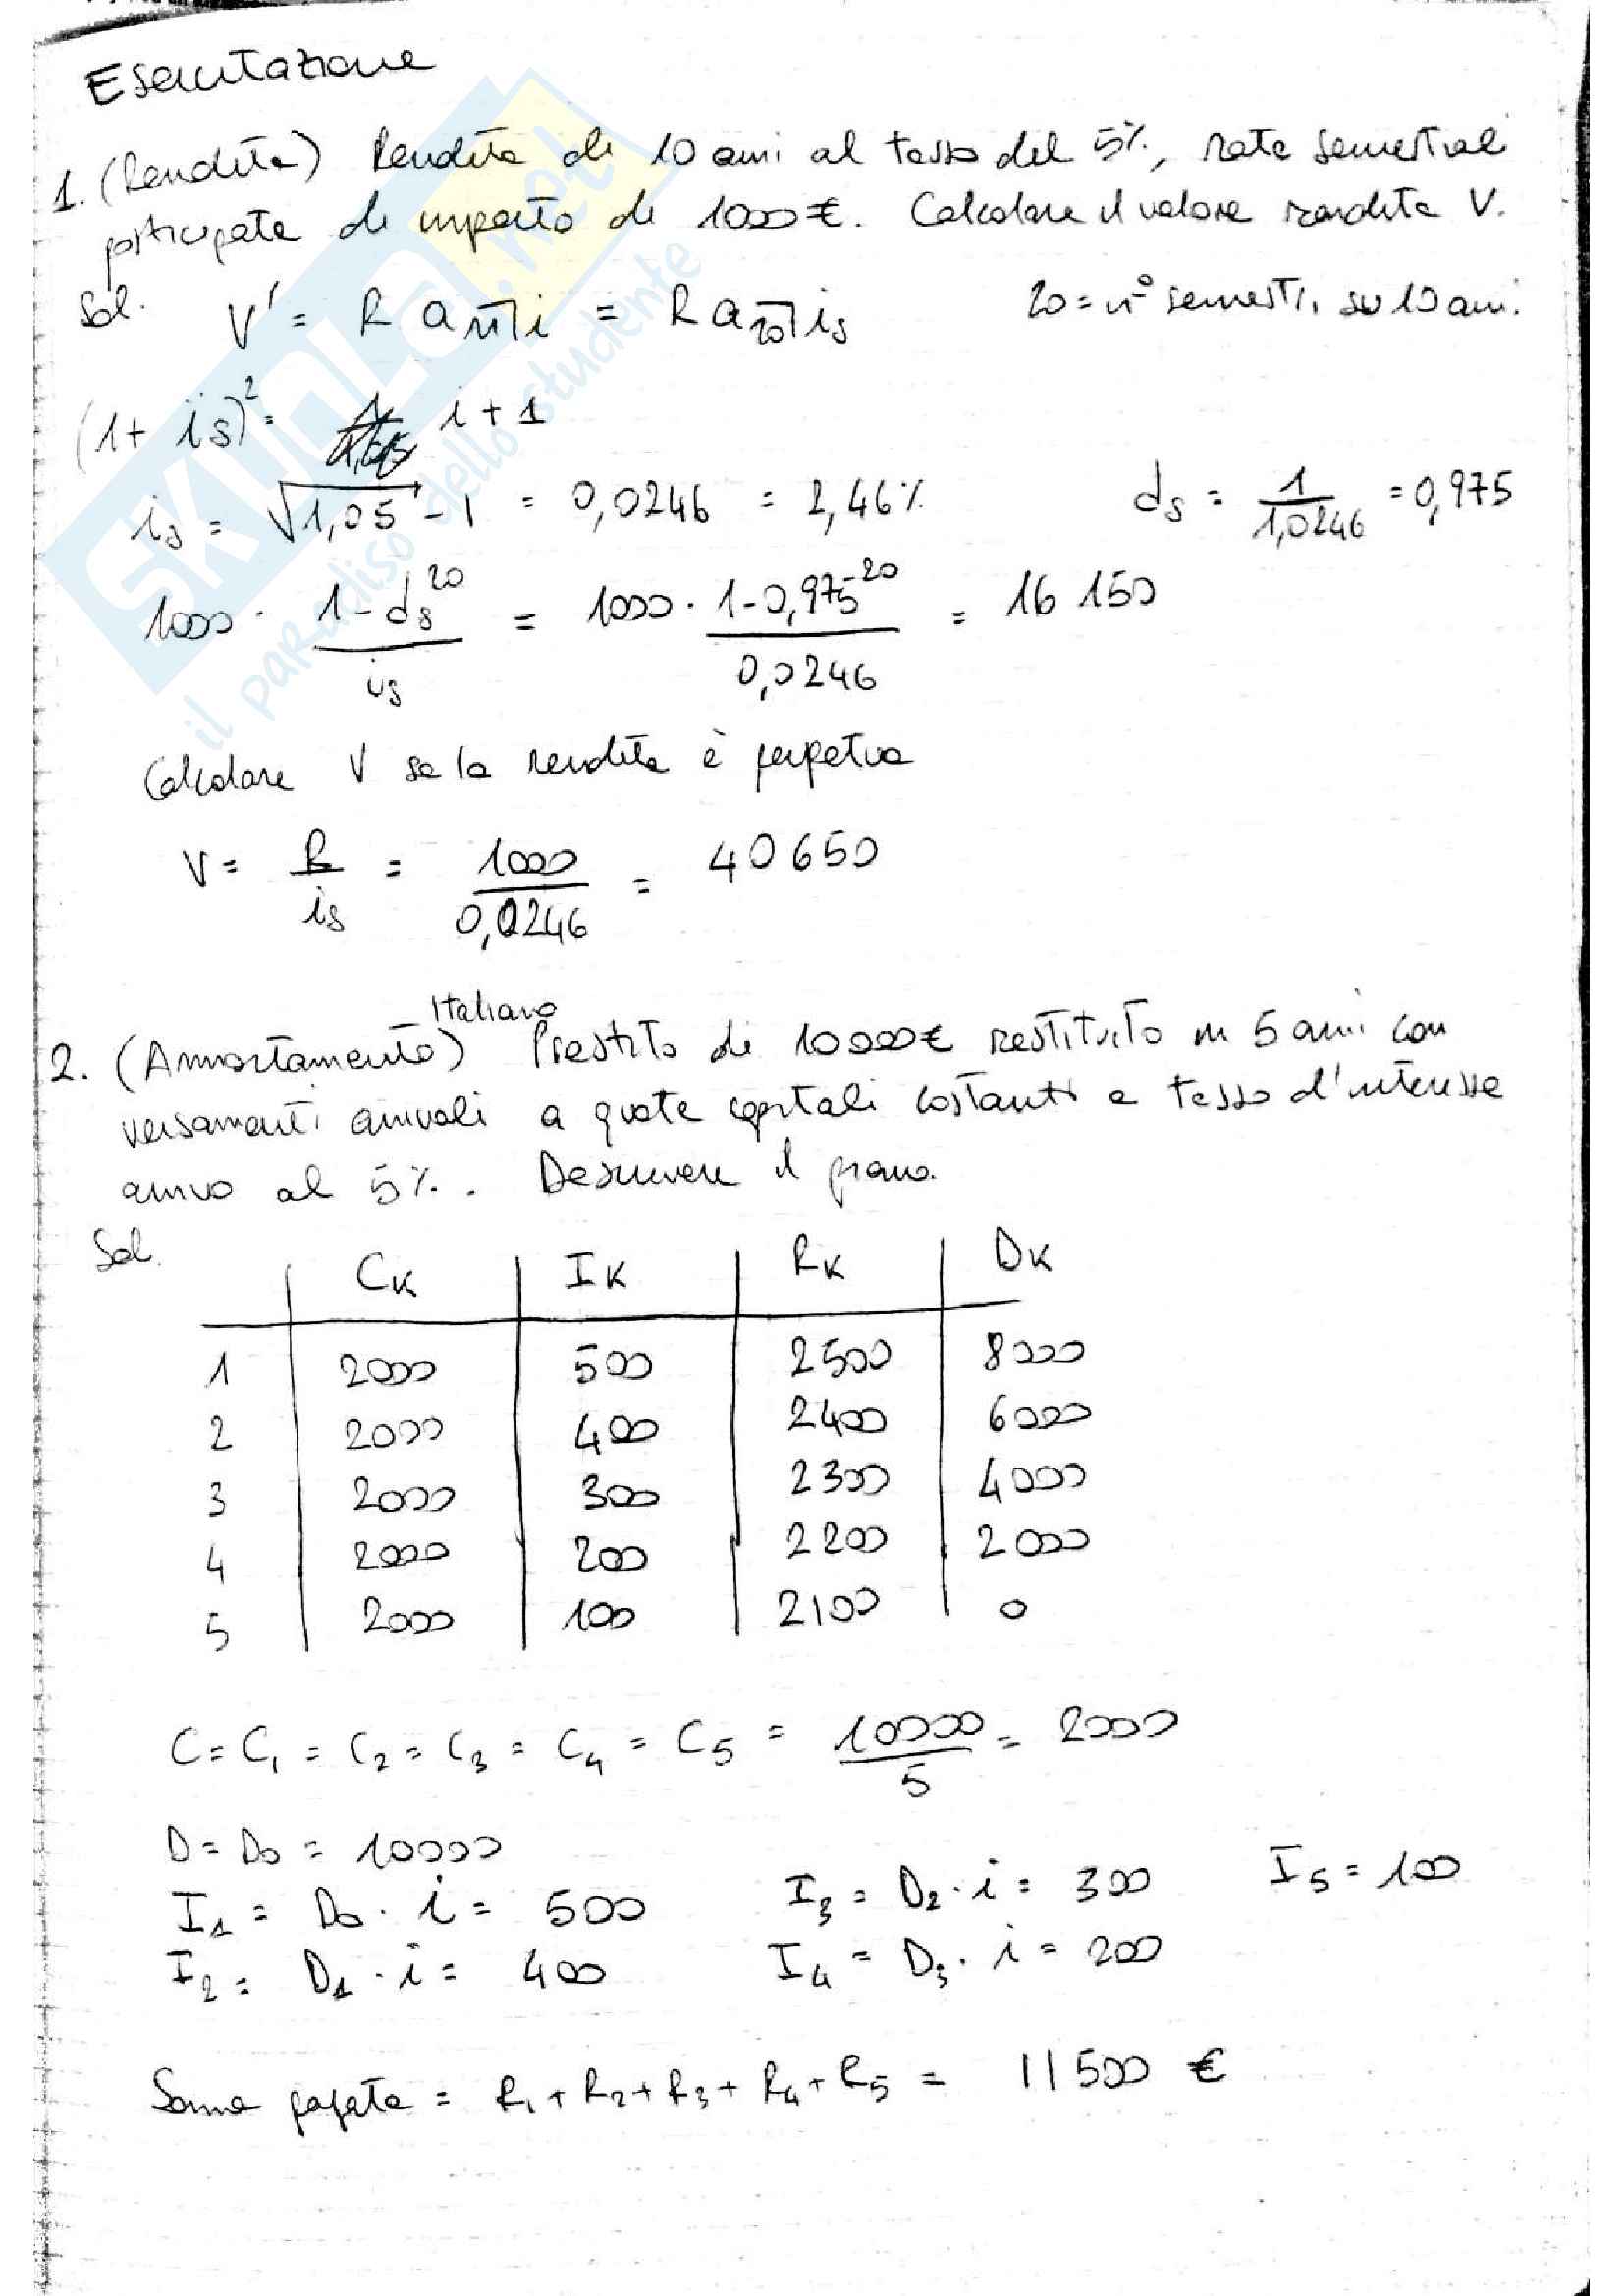 Esercitazione
1. (Rendita) Rendita di 10 anni al tasso del 5%, rate semestrali
posticipate di importo di 1000 €. Calcolare il valore rendita V.
Sol. V' = R a n̅| i = R a 20̅| is    20 = n° semestri su 10 anni.
(1 + is)² = i + 1
is = √1,05 - 1 = 0,0246 = 2,46%    ds = 1/1,0246 = 0,975
1000 · (1 - ds^20)/is = 1000 · (1 - 0,975^20)/0,0246 = 16 150
Calcolare V se la rendita è perpetua
V = R/is = 1000/0,0246 = 40 650
Italiano
2. (Ammortamento) Prestito di 10000 € restituito in 5 anni con
versamenti annuali a quote capitali costanti e tasso d'interesse
annuo al 5%. Descrivere il piano.
Sol.
CK IK RK DK
1 2000 500 2500 8000
2 2000 400 2400 6000
3 2000 300 2300 4000
4 2000 200 2200 2000
5 2000 100 2100 0
C = C1 = C2 = C3 = C4 = C5 = 10000/5 = 2000
D = D0 = 10000
I1 = D0 · i = 500    I3 = D2 · i = 300    I5 = 100
I2 = D1 · i = 400    I4 = D3 · i = 200
Somma pagata = R1 + R2 + R3 + R4 + R5 = 11500 €
SKUOLA.net
il paradiso dello studente